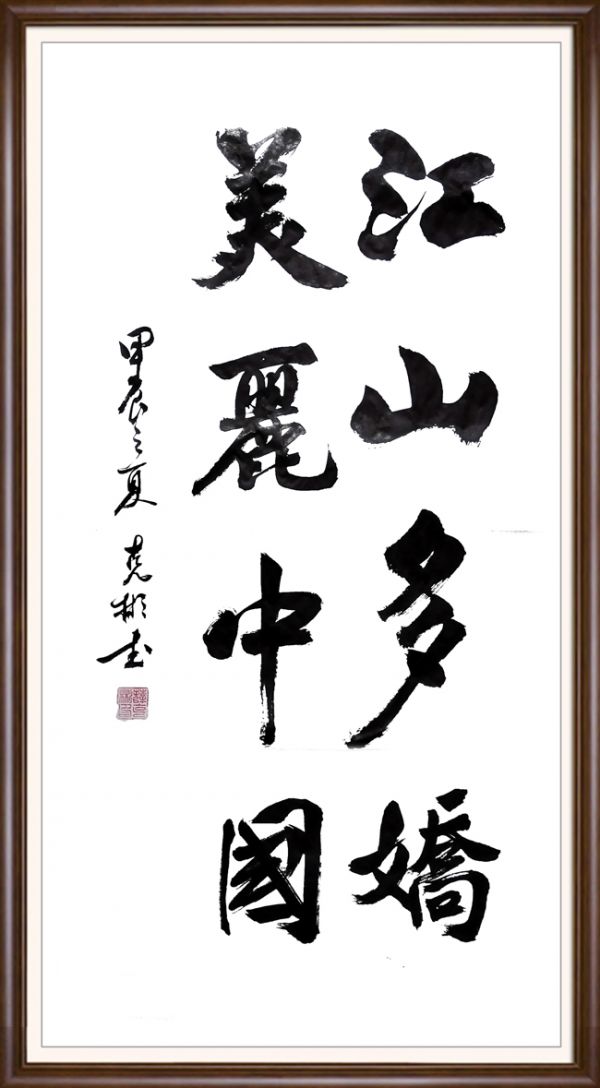 江山多嬌
美麗中國
甲辰之夏 克彬书